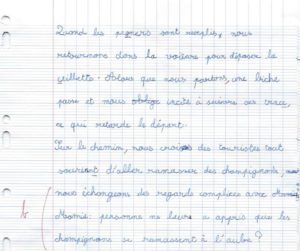 Quand les paniers sont remplis, nous
retournons dans la voiture pour déposer la
cueillette. Alors que nous partons, une biche
passe et nous oblige incite à suivre ses trace,
ce qui retarde le départ.
Sur le chemin, nous croisons des touristes tout
d'aller ramasser des champignons,
nous échangeons des regards complices avec
Mamie: personne ne leur a appris que les
champignons se ramassent à l'aube?